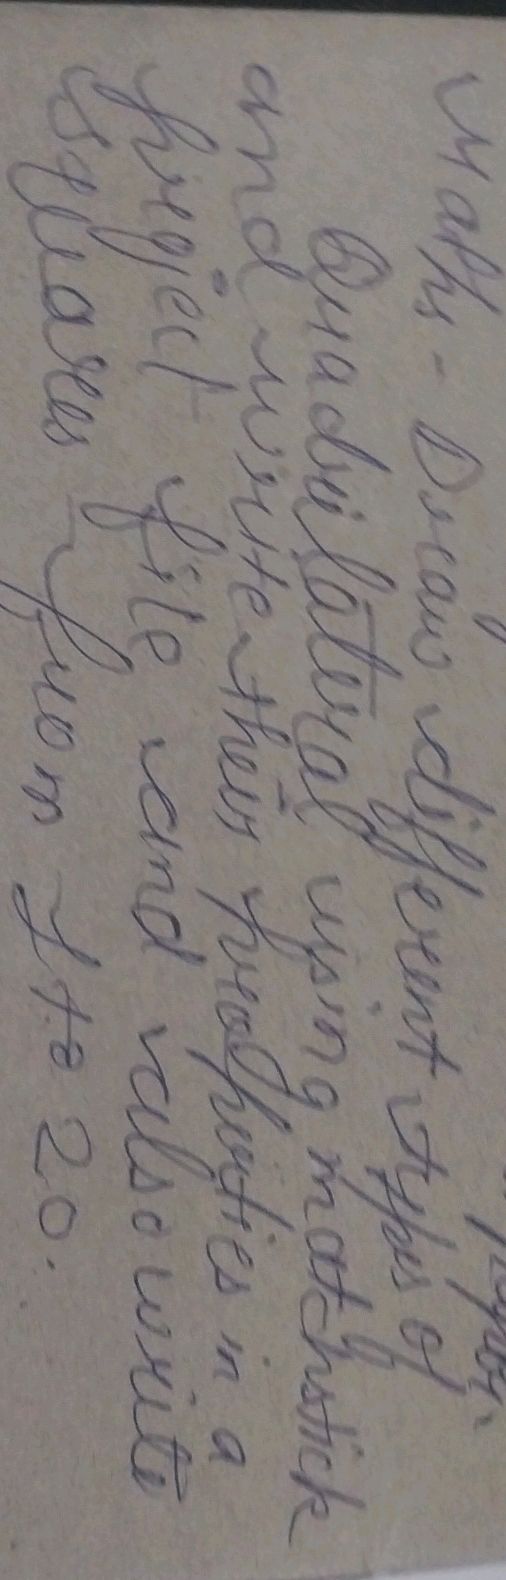 Maths - Draw different types of
Quadrilateral using matchstick
and write their properties in a
project file and also write
squares from 1 to 20.